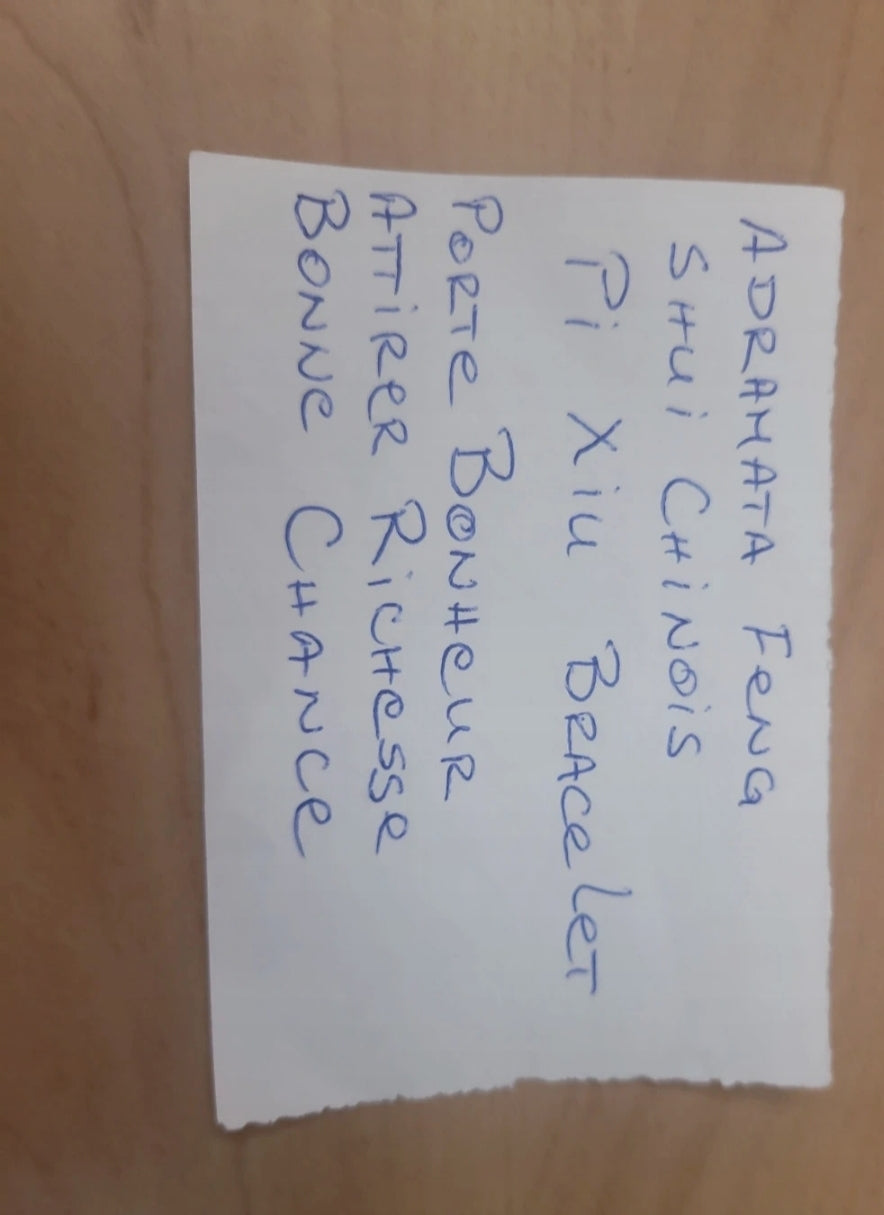 ADRAMATA FENG
SHUI CHINOIS
Pi Xiu BRACELET
PORTE BONHEUR
ATTIRER RICHESSE
BONNE CHANCE